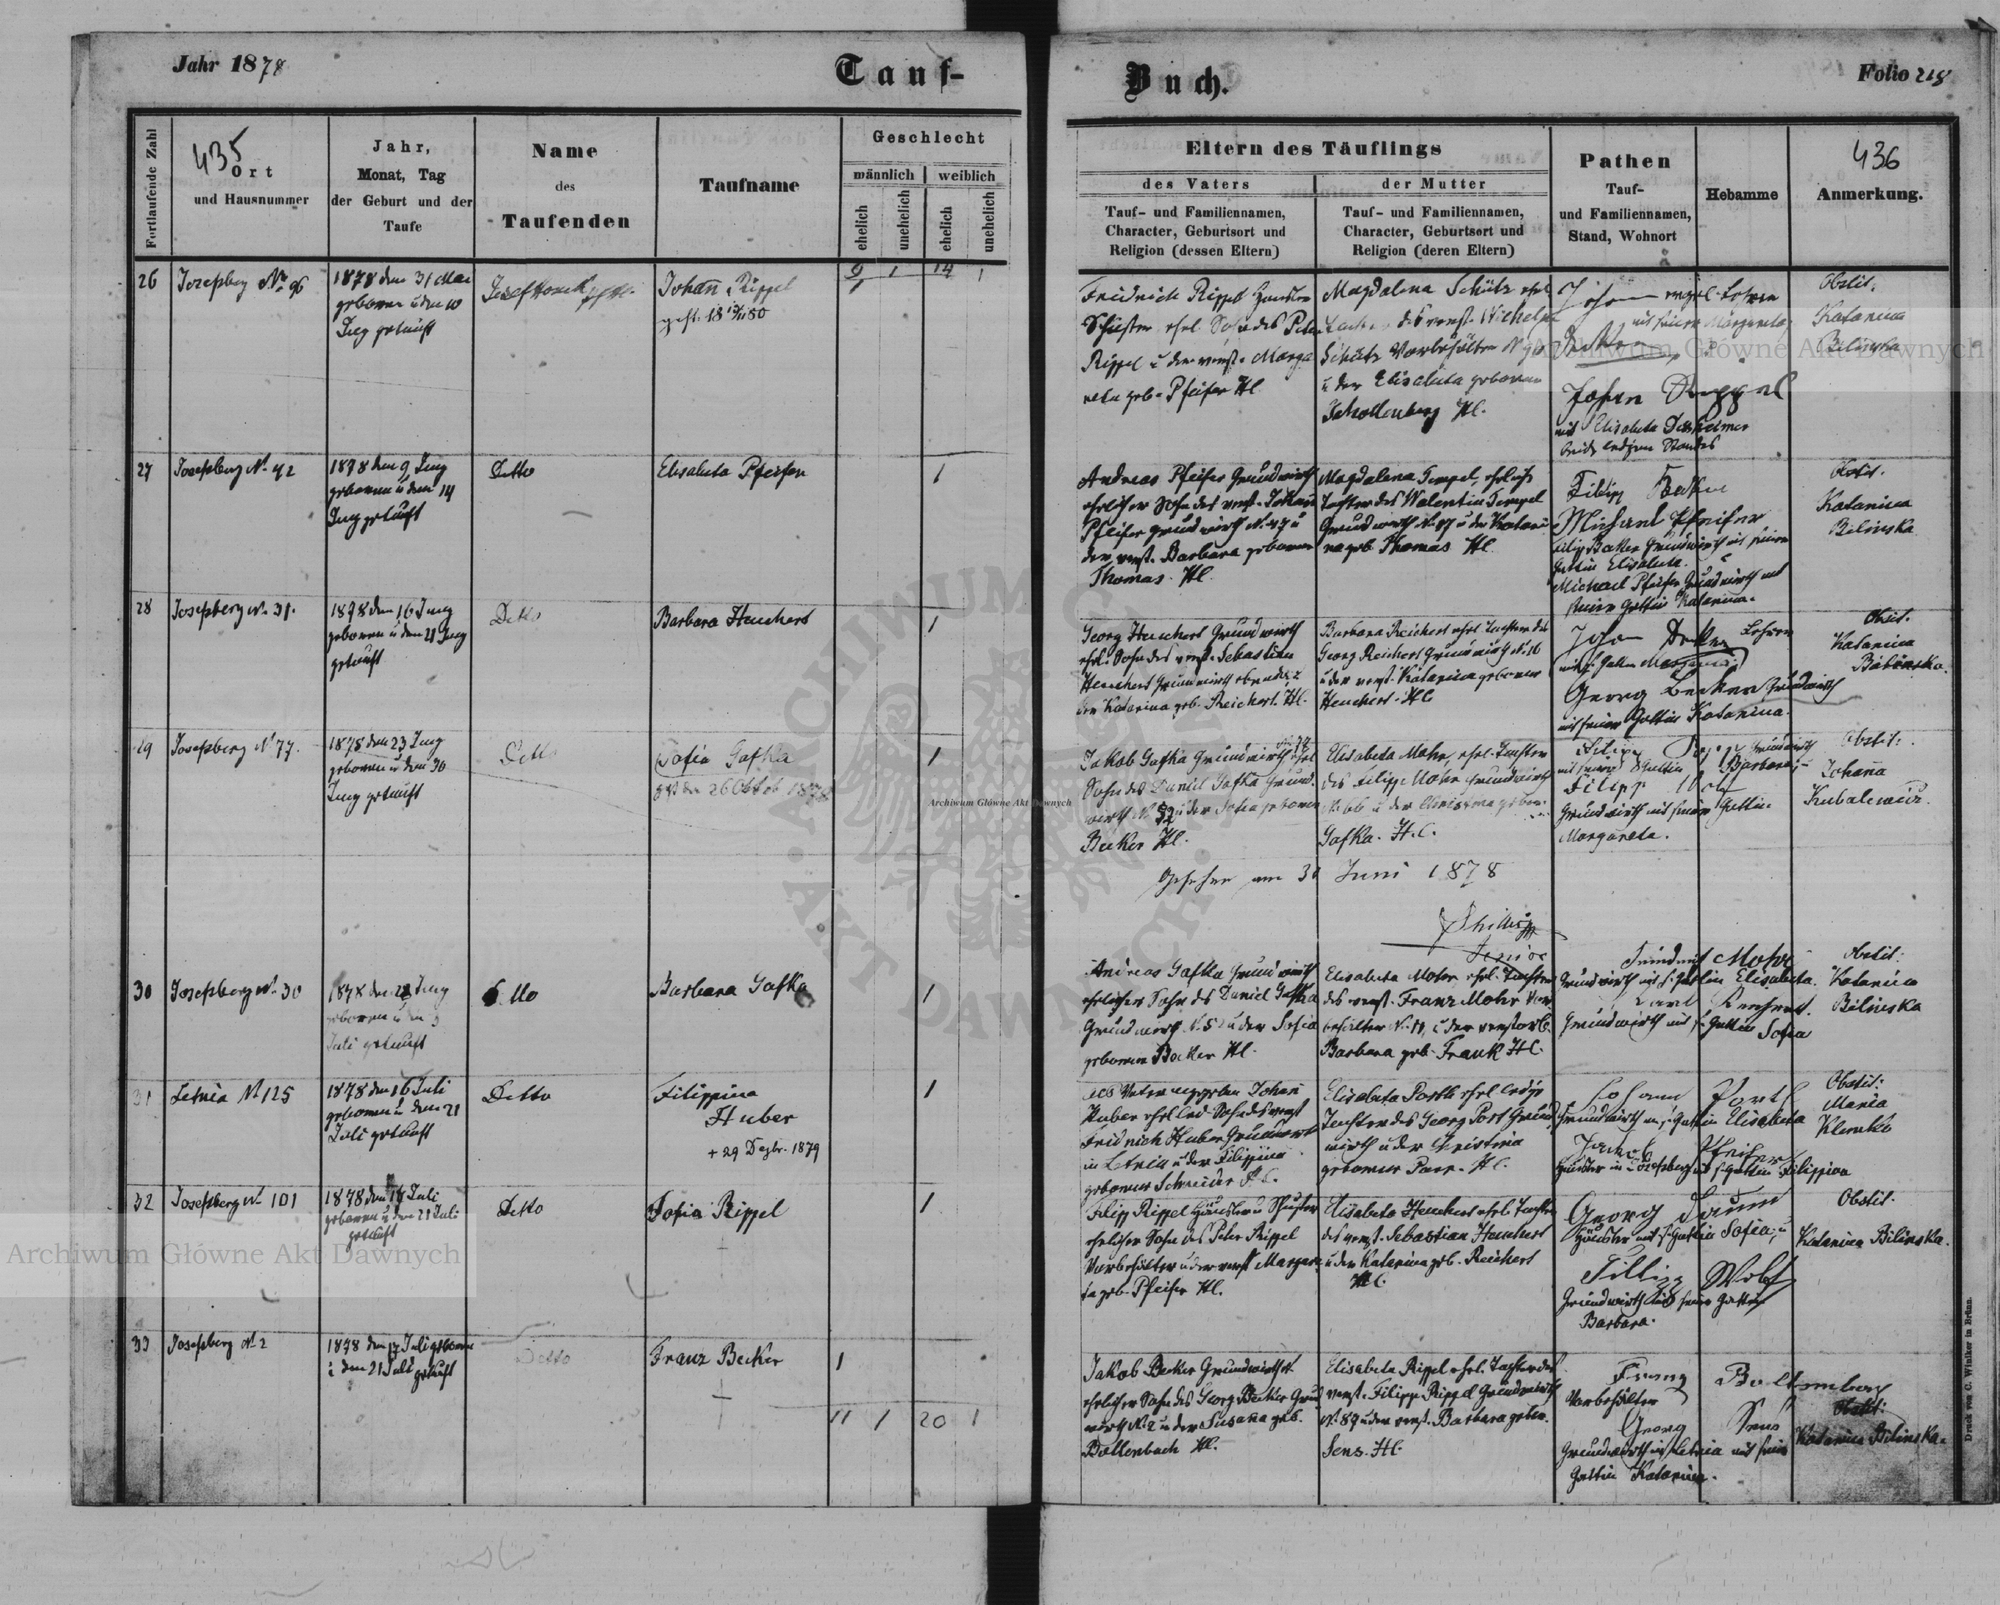 Jahr 1878
Tauf-
Fortlaufende Zahl
435
Ort
und Hausnummer
Jahr,
Monat, Tag
der Geburt und der
Taufe
Name
des
Taufenden
Taufname
Geschlecht
männlich
weiblich
ehelich
unehelich
ehelich
unehelich
26
Josefsberg No 96
1878 den 31 Mai
geboren u den 10
Juny getauft
Johann Rippel
9 1 14 1
1
27
Josefsberg No 42
1878 den 9 Juny
geboren u den 14
Juny getauft
Detto
Elisabeta Pfeifer
1
28
Josefsberg No 31.
1878 den 16 Juny
geboren u den 21 Juny
getauft
Detto
Barbara Heuchert
1
29
Josefsberg No 77.
1878 den 23 Juny
geboren u den 30
Juny getauft
Detto
Sofia Gafka
den 26 Oktob 1878
1
30
Josefsberg No 30
1878 den 28 Juny
geboren u den
Juli getauft
Detto
Barbara Gafka
1
31
Letnia No 125
1878 den 16 Juli
geboren u den 21
Juli getauft
Detto
Filippina
Huber
+ 29 Dezbr. 1879
1
32
Josefsberg No 101
1878 den 17 Juli
geboren u den 21 Juli
getauft
Detto
Sofia Rippel
1
33
Josefsberg No 2
1878 den 17 Juli geboren
u den 21 Juli getauft
Detto
Franz Becker
1
11 1 20 1
Buch.
Folio 218
Eltern des Täuflings
des Vaters
der Mutter
Tauf- und Familiennamen,
Character, Geburtsort und
Religion (dessen Eltern)
Tauf- und Familiennamen,
Character, Geburtsort und
Religion (deren Eltern)
Pathen
Tauf-
und Familiennamen,
Stand, Wohnort
Hebamme
436
Anmerkung.
Fridrich Rippel Häusler
Schuster ehel. Sohn des Peter
Rippel u der verst. Marga
reta geb. Pfeifer HC
Magdalena Schütz ehel
Tochter des verst. Wilhelm
Schütz Vorbehälter No 90
u der Elisabeta geborene
Schollenberg HC.
mit seiner Margareta
Johan Rippel
mit Elisabeta
beide ledigen Standes
Obstit.
Katarina
Bilinska
Andreas Pfeifer Grundwirth
ehelicher Sohn des verst. Johann
Pfeifer Grundwirth No 47 u
der verst. Barbara geborene
Thomas. HC.
Magdalena Tempel, eheliche
Tochter des Walentin Tempel
Grundwirth No 17 u der Katari
na geb. Thomas HC
Filipp Becker
Michael Pfeifer
Filipp Becker Grundwirth mit seiner
Gattin Elisabeta. u
Michael Pfeifer Grundwirth mit
seiner Gattin Katarina.
Obstit.
Katarina
Bilinska
Georg Heuchert Grundwirth
ehel. Sohn des verst. Sebastian
Heuchert Grundwirth ebenda u
der Katarina geb. Reichert. HC.
Barbara Reichert ehel Tochter des
Georg Reichert Grundwirth No 16
u der verst. Katarina geborene
Heuchert. HC
Johan Decker Lehrer
Georg Becker Grundwirth
mit seiner Gattin Katarina.
Obstit.
Katarina
Bilinska.
Jakob Gafka Grundwirth ehel
Sohn des Daniel Gafka Grund
wirth No 52 u der Sofia geborene
Becker HC.
Elisabeta Mohr, ehel. Tochter
des Filipp Mohr Grundwirth
No 66 u der Christina gebor.
Gafka. H.C.
Grundwirth
mit seiner Gattin Barbara u
Filipp Wolf
Grundwirth mit seiner Gattin
Margareta.
Obstit:
Johana
Kubalewicz.
Gesehen am 30 Juni 1878
Senior
Andreas Gafka Grundwirth
ehelicher Sohn des Daniel Gafka
Grundwirth No 52 u der Sofia
geborene Becker HC.
Elisabeta Mohr ehel. Tochter
des verst. Franz Mohr Vor
behälter No 11, u der verstorb.
Barbara geb. Frank HC.
Fridrich Mohr
Grundwirth mit s. Gattin Elisabeta.
Grundwirth mit s. Gattin
Sofia
Obstit:
Katarina
Bilinska
als Vater angegeben Johan
Huber ehel led. Sohn des verst
Fridrich Huber Grundwirth
in Letnia u der Filippina
geborene Schneider HC.
Elisabeta Porth ehel ledige
Tochter des Georg Port Grund
wirth u der Christina
geborene Parr. HC.
Johann Porth
Grundwirth u s. Gattin Elisabeta
Jakob Pfeifer
Häusler in Josefsberg mit s Gattin Filippina
Obstit:
Maria
Klemko
Filipp Rippel Häusler u Schuster
ehelicher Sohn des Peter Rippel
Vorbehälter u der verst Margare
ta geb. Pfeifer HC.
Elisabeta Heuchert ehel. Tochter
des verst. Sebastian Heuchert
u der Katarina geb. Reichert
HC
Georg Daum
Häusler mit s. Gattin Sofia, u
Fillipp Wolf
Grundwirth mit seiner Gattin
Barbara.
Obstit.
Katarina Bilinska.
Jakob Becker Grundwirth
ehelicher Sohn des Georg Becker Grund
wirth No 2 u der Susana geb.
Bollenbach HC.
Elisabeta Rippel ehel. Tochter des
verst. Filipp Rippel Grundwirth
No 87 u der verst. Barbara gebor.
Sens. HC.
Franz Bollenbach
Vorbehälter
Georg Sens
Grundwirth in Letnia mit seiner
Gattin Katarina.
Obstit:
Katarina Bilinska.
Druck von C. Winiker in Brünn.
Archiwum Główne Akt Dawnych
Archiwum Główne Akt Dawnych
Archiwum Główne Akt Dawnych
ARCHIWUM GŁÓWNE AKT DAWNYCH